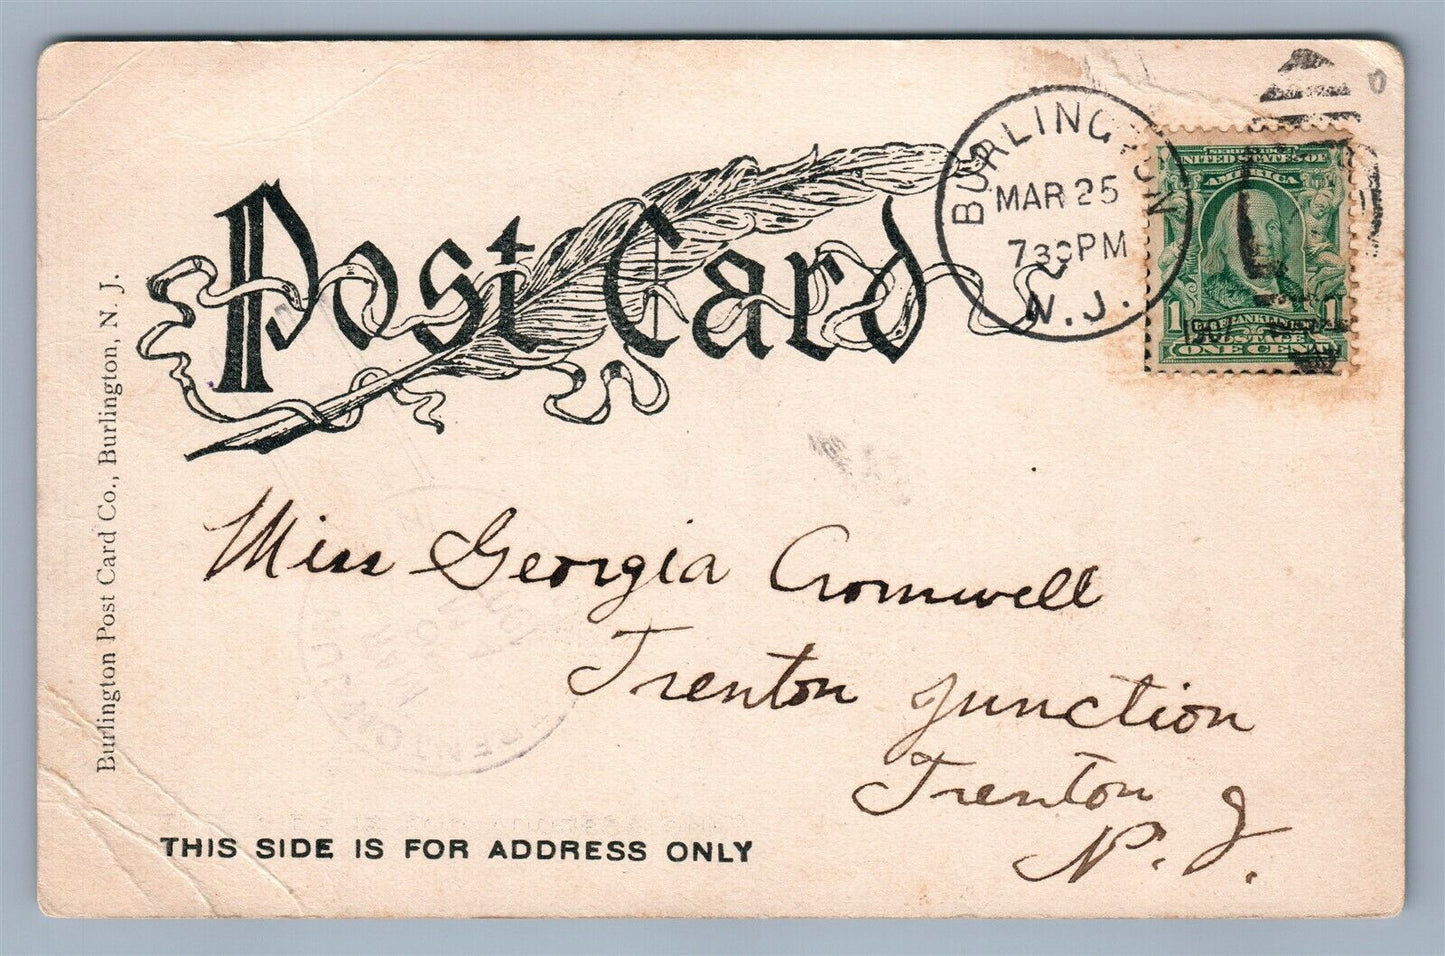 Post Card
BURLINGTON
MAR 25
730PM
N.J.
UNITED STATES OF
AMERICA
1 FRANKLIN 1
POSTAGE
ONE CENT
Burlington Post Card Co., Burlington, N. J.
Miss Georgia Cromwell
Trenton Junction
Trenton
N. J.
THIS SIDE IS FOR ADDRESS ONLY